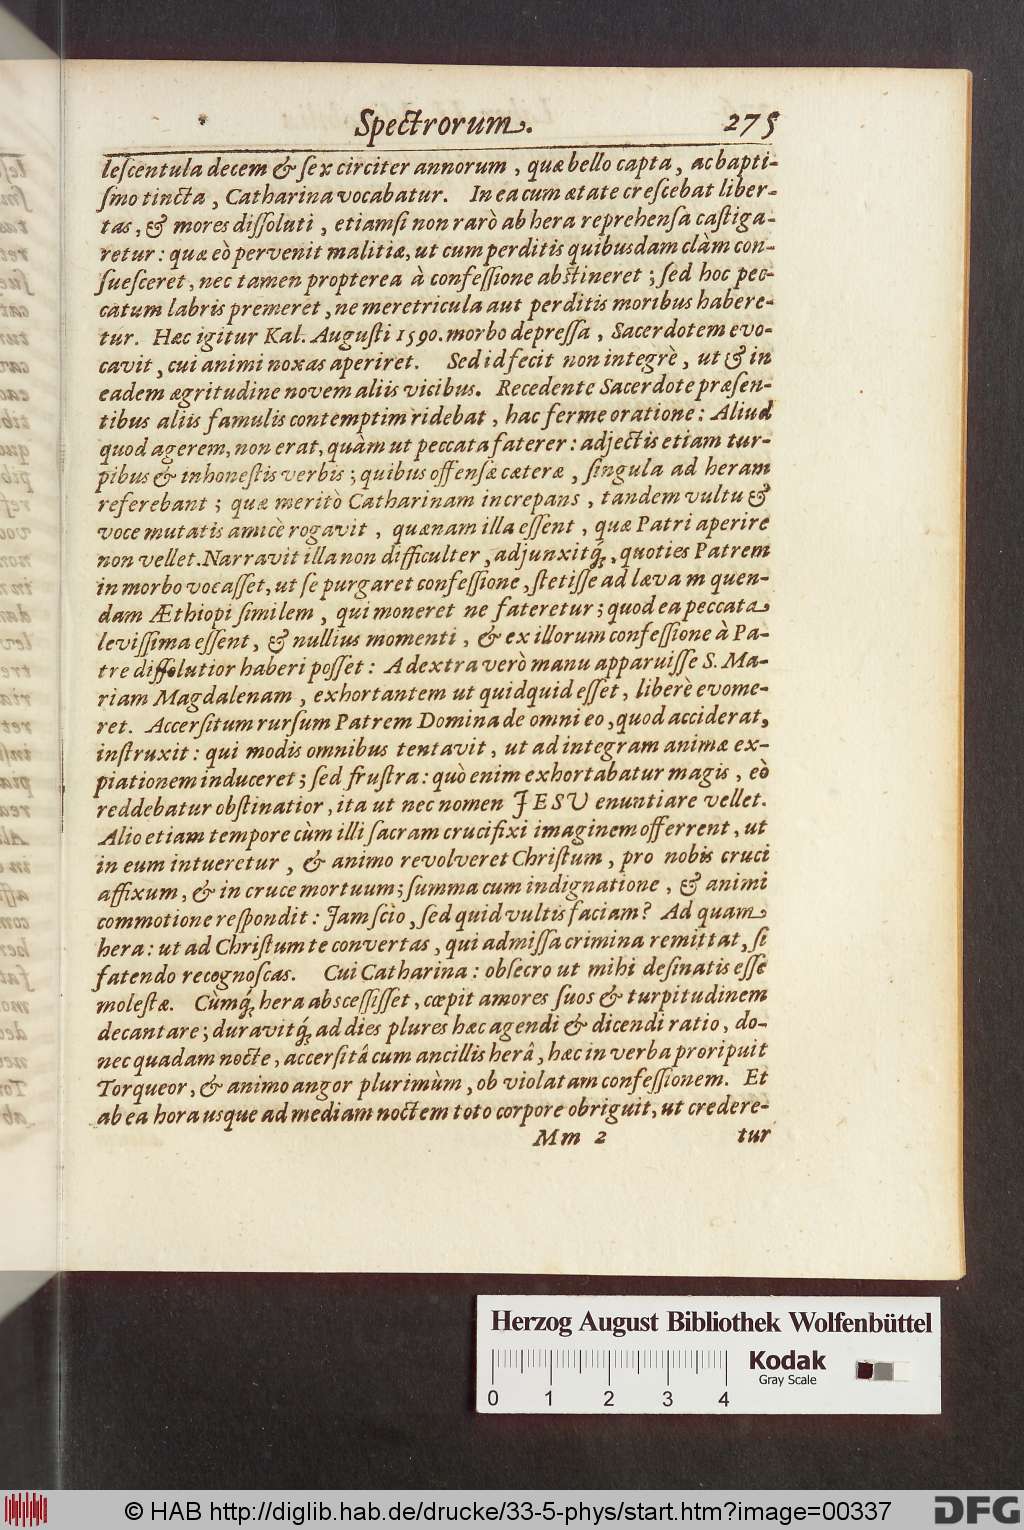 Spectrorum. 275
leſcentula decem & ſex circiter annorum, quæ bello capta, ac bapti-
ſmo tincta, Catharina vocabatur. In ea cum ætate creſcebat liber-
tas, & mores diſſoluti, etiamſi non rarò ab hera reprehenſa caſtiga-
retur: quæ eò pervenit malitiæ, ut cum perditis quibusdam clàm con-
ſueſceret, nec tamen propterea à confeſſione abſtineret; ſed hoc pec-
catum labris premeret, ne meretricula aut perditis moribus habere-
tur. Hæc igitur Kal. Auguſti 1590. morbo depreſſa, Sacerdotem evo-
cavit, cui animi noxas aperiret. Sed id fecit non integrè, ut & in
eadem ægritudine novem aliis vicibus. Recedente Sacerdote præſen-
tibus aliis famulis contemptim ridebat, hac ferme oratione: Aliud
quod agerem, non erat, quàm ut peccata faterer: adjectis etiam tur-
pibus & inhoneſtis verbis; quibus offenſæ cæteræ, ſingula ad heram
referebant; quæ meritò Catharinam increpans, tandem vultu &
voce mutatis amicè rogavit, quænam illa eſſent, quæ Patri aperire
non vellet. Narravit illa non difficulter, adjunxitq́;, quoties Patrem
in morbo vocaſſet, ut ſe purgaret confeſſione, ſtetiſſe ad lævam quen-
dam Æthiopi ſimilem, qui moneret ne fateretur; quod ea peccata
leviſſima eſſent, & nullius momenti, & ex illorum confeſſione à Pa-
tre diſſolutior haberi poſſet: A dextra verò manu apparuiſſe S. Ma-
riam Magdalenam, exhortantem ut quidquid eſſet, liberè evome-
ret. Accerſitum rurſum Patrem Domina de omni eo, quod acciderat,
inſtruxit: qui modis omnibus tentavit, ut ad integram animæ ex-
piationem induceret; ſed fruſtra: quò enim exhortabatur magis, eò
reddebatur obſtinatior, ita ut nec nomen JESU enuntiare vellet.
Alio etiam tempore cùm illi ſacram crucifixi imaginem offerrent, ut
in eum intueretur, & animo revolveret Chriſtum, pro nobis cruci
affixum, & in cruce mortuum; ſumma cum indignatione, & animi
commotione reſpondit: Jam ſcio, ſed quid vultis faciam? Ad quam
hera: ut ad Chriſtum te convertas, qui admiſſa crimina remittat, ſi
fatendo recognoſcas. Cui Catharina: obſecro ut mihi deſinatis eſſe
moleſtæ. Cùmq́; hera absceſſiſſet, cœpit amores ſuos & turpitudinem
decantare; duravitq́; ad dies plures hæc agendi & dicendi ratio, do-
nec quadam nocte, accerſitâ cum ancillis herâ, hæc in verba proripuit
Torqueor, & animo angor plurimùm, ob violatam confeſſionem. Et
ab ea hora usque ad mediam noctem toto corpore obriguit, ut credere-
Mm 2 tur
Herzog August Bibliothek Wolfenbüttel
Kodak
Gray Scale
0 1 2 3 4
© HAB http://diglib.hab.de/drucke/33-5-phys/start.htm?image=00337
DFG